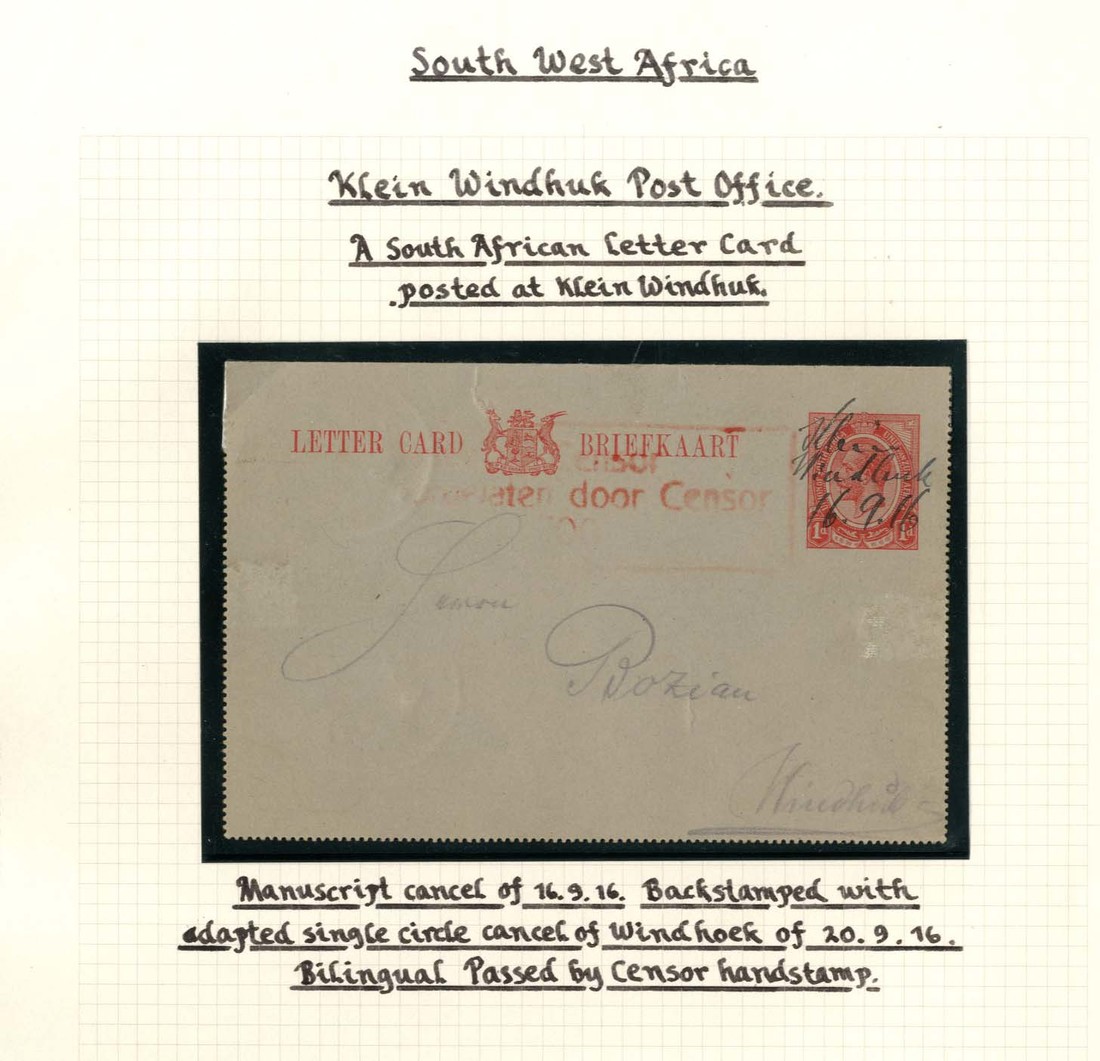 South West Africa
Klein Windhuk Post Office.
A South African Letter Card
posted at Klein Windhuk.
LETTER CARD BRIEFKAART
Censor
door Censor
Klein
Windhuk
16.9.16
1d 1d
Bozian
Windhuk
Manuscript cancel of 16.9.16. Backstamped with
adapted single circle cancel of Windhoek of 20.9.16.
Bilingual Passed by Censor handstamp.